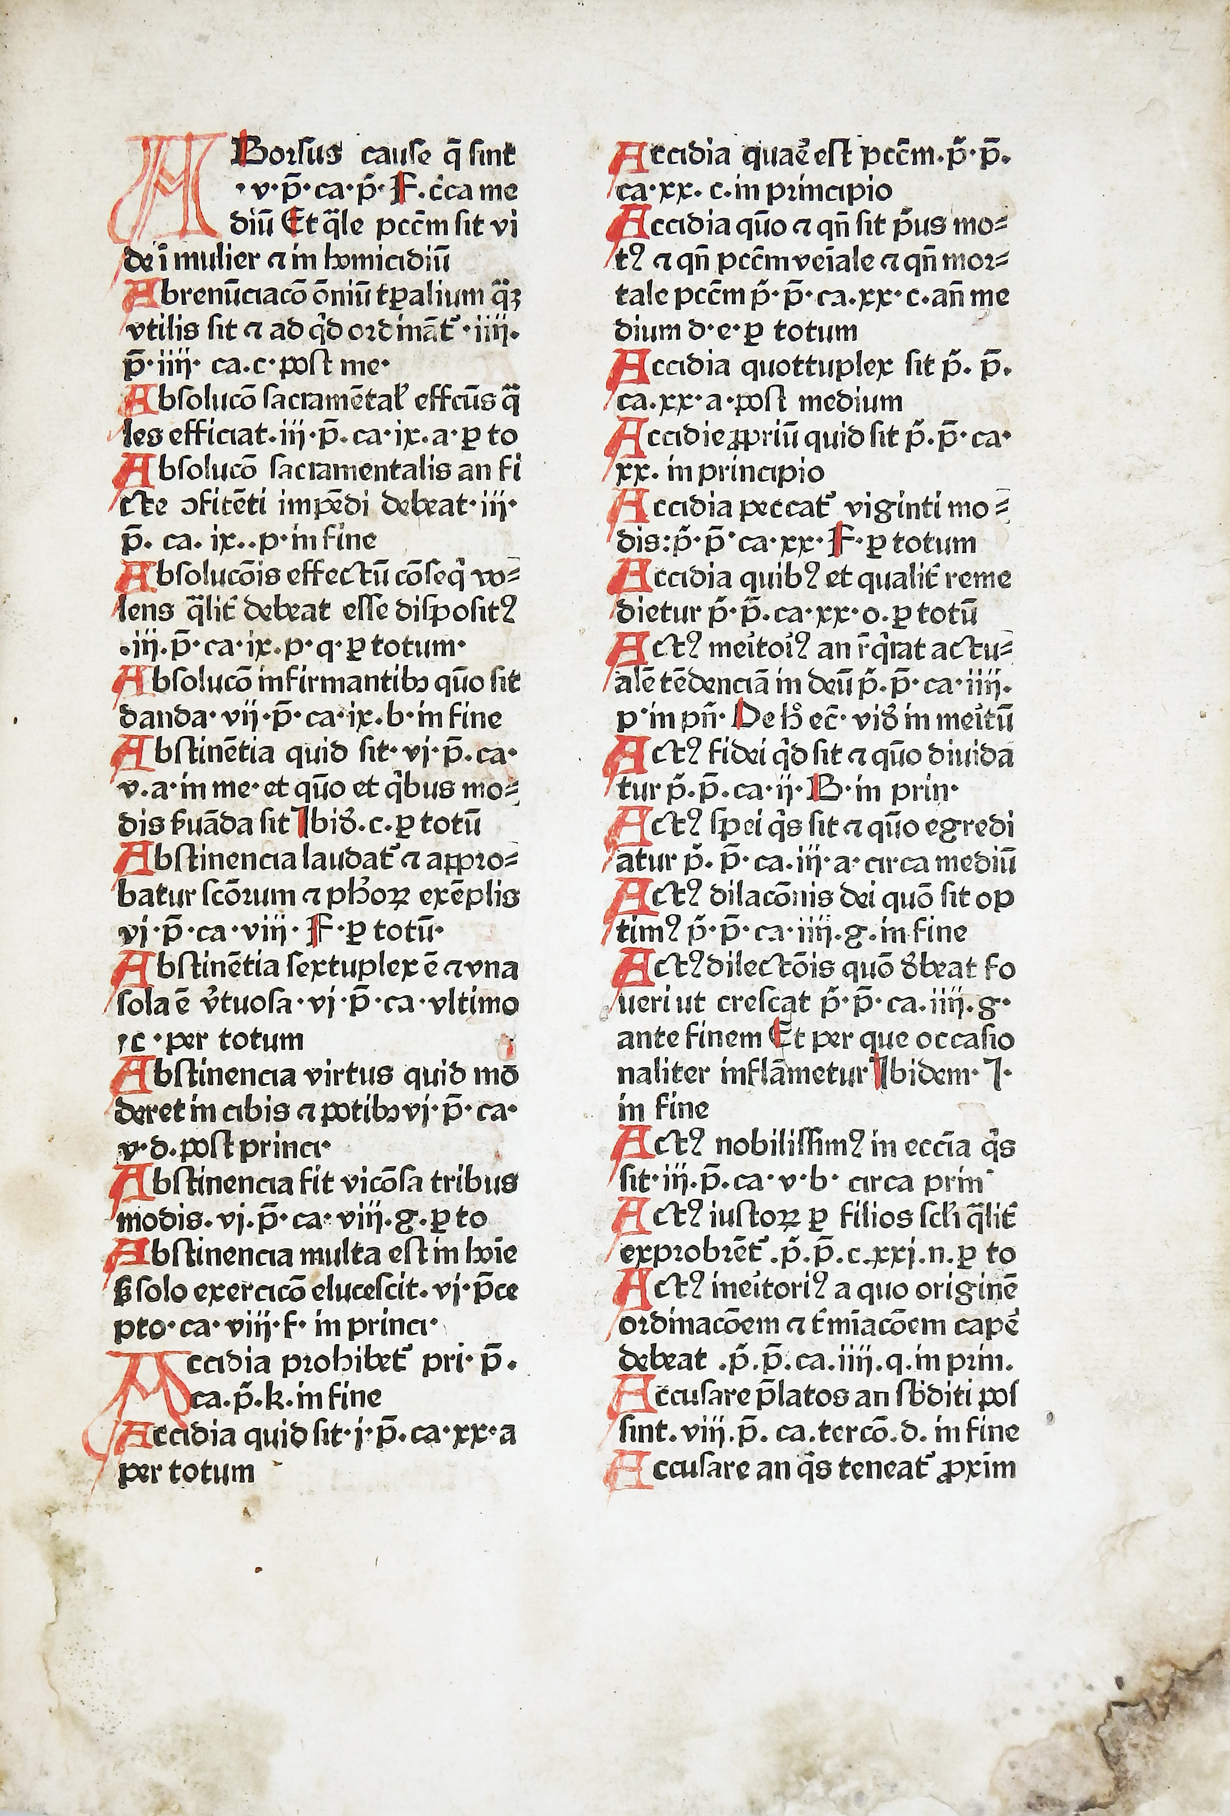 ABorsus cause q̄ sint
·v·p̄·ca·p̄·F·c̄ca me
diū Et q̄le pccm̄ sit vi
de ī mulier ⁊ in homicidiū
Abrenūciacō ōniū tꝑalium q̄ꝫ
vtilis sit ⁊ ad qͥd ordīāt᷑·iiij·
p̄·iiij· ca.c·post me·
Absolucō sacramētal᷑ effcūs q̄
les efficiat·iij·p̄·ca·ix·a·ꝑ to
Absolucō sacramentalis an fi
cte ↄfitēti impēdi debeat·iij·
p̄· ca· ix··p·in fine
Absolucōis effectū cōseq̄ vo⸗
lens q̄lit᷑ debeat esse dispositꝰ
·iij·p̄·ca·ix·p·q·ꝑ totum·
Absolucō infirmantibꝫ quō sit
danda· vij·p̄·ca·ix·b·in fine
Abstinētia quid sit· vj·p̄·ca·
v·a·in me·et quō et qͥbus mo⸗
dis ẜuāda sit Ibid̄·c·ꝑ totū
Abstinencia laudat᷑ ⁊ appro⸗
batur scōrum ⁊ ph̄oꝝ exēplis
vj·p̄·ca·viij· F·ꝑ totū·
Abstinētia sextuplex ē ⁊ vna
sola ē v᷑tuosa·vj·p̄·ca·vltimo
·c·per totum
Abstinencia virtus quid mō
deret in cibis ⁊ potibꝫ vj·p̄·ca·
v·d·post princi·
Abstinencia fit vicōsa tribus
modis·vj·p̄·ca·viij·g·ꝑ to
Abstinencia multa est in hoīe
ꝫ solo exercicō elucescit·vj·p̄ce
pto·ca·viij·f·in princi·
Accidia prohibet᷑ pri·p̄·
ca·p̄·k·in fine
Accidia quid sit·j·p̄·ca·xx·a
per totum
Accidia quae᷑ est pccm̄·p̄·p̄·
ca·xx· c·in principio
Accidia quō ⁊ qn̄ sit p̄us mo⸗
tꝰ ⁊ qn̄ pccm̄ veīale ⁊ qn̄ mor⸗
tale pccm̄ p̄·p̄·ca·xx·c·an̄ me
dium d·e·ꝑ totum
Accidia quottuplex sit p̄·p̄·
ca·xx·a·post medium
Accidie ꝓpriū quid sit p̄·p̄·ca·
xx· in principio
Accidia peccat᷑ viginti mo⸗
dis:p̄·p̄·ca·xx·F·ꝑ totum
Accidia quibꝰ et qualit᷑ reme
dietur p̄·p̄·ca·xx·o·ꝑ totū
Actꝰ meͥtoiꝰ an rͣqͥrat actu⸗
alē tēdenciā in deū p̄·p̄·ca·iiij·
p·in pn̄·De h̄ ec̄·vid̄ in meͥtū
Actꝰ fidei qͥd sit ⁊ quō diuida
tur p̄·p̄·ca·ij·B·in prin·
Actꝰ spei qͥs sit ⁊ quō egredi
atur p̄·p̄·ca·iij·a·circa mediū
Actꝰ dilacōnis dei quō sit op
timꝰ p̄·p̄·ca·iiij·g·in fine
Actꝰ dilectōis quō d̄beat fo
ueri ut crescat p̄·p̄·ca·iiij·g·
ante finem Et per que occasio
naliter inflāmetur Ibidem·I·
in fine
Actꝰ nobilissimꝰ in eccīa qͥs
sit·iij·p̄·ca·v·b·circa prin
Actꝰ iustoꝝ ꝑ filios scl̄i q̄lit᷑
exprobrēt᷑·p̄·p̄·c·xxj·n·ꝑ to
Actꝰ meͥtoriꝰ a quo originē
ordinacōem ⁊ t᷑miacōem capē
debeat ·p̄·p̄·ca·iiij·q·in prin·
Accusare p̄latos an sb̄diti pos
sint·viij·p̄· ca·tercō·d· in fine
Accusare an qͥs teneat᷑ ꝓxim